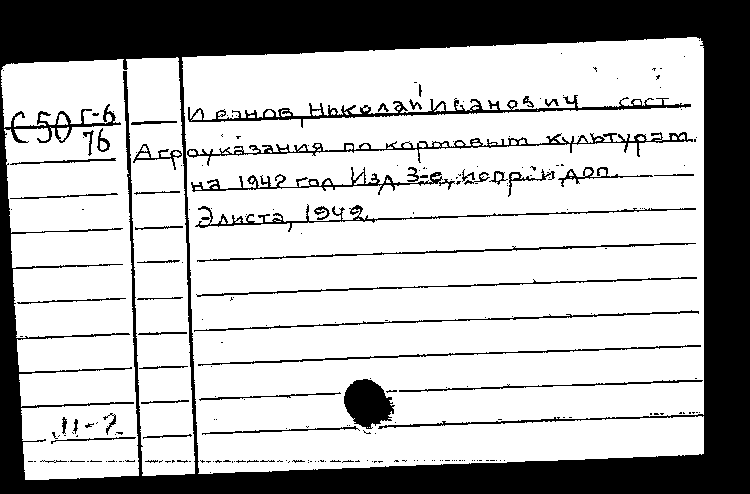 С 50 Г-6
76
Иванов, Николай Иванович сост.
Агроуказания по кормовым культурам
на 1942 год. Изд. 3-е, испр. и доп.
Элиста, 1942.